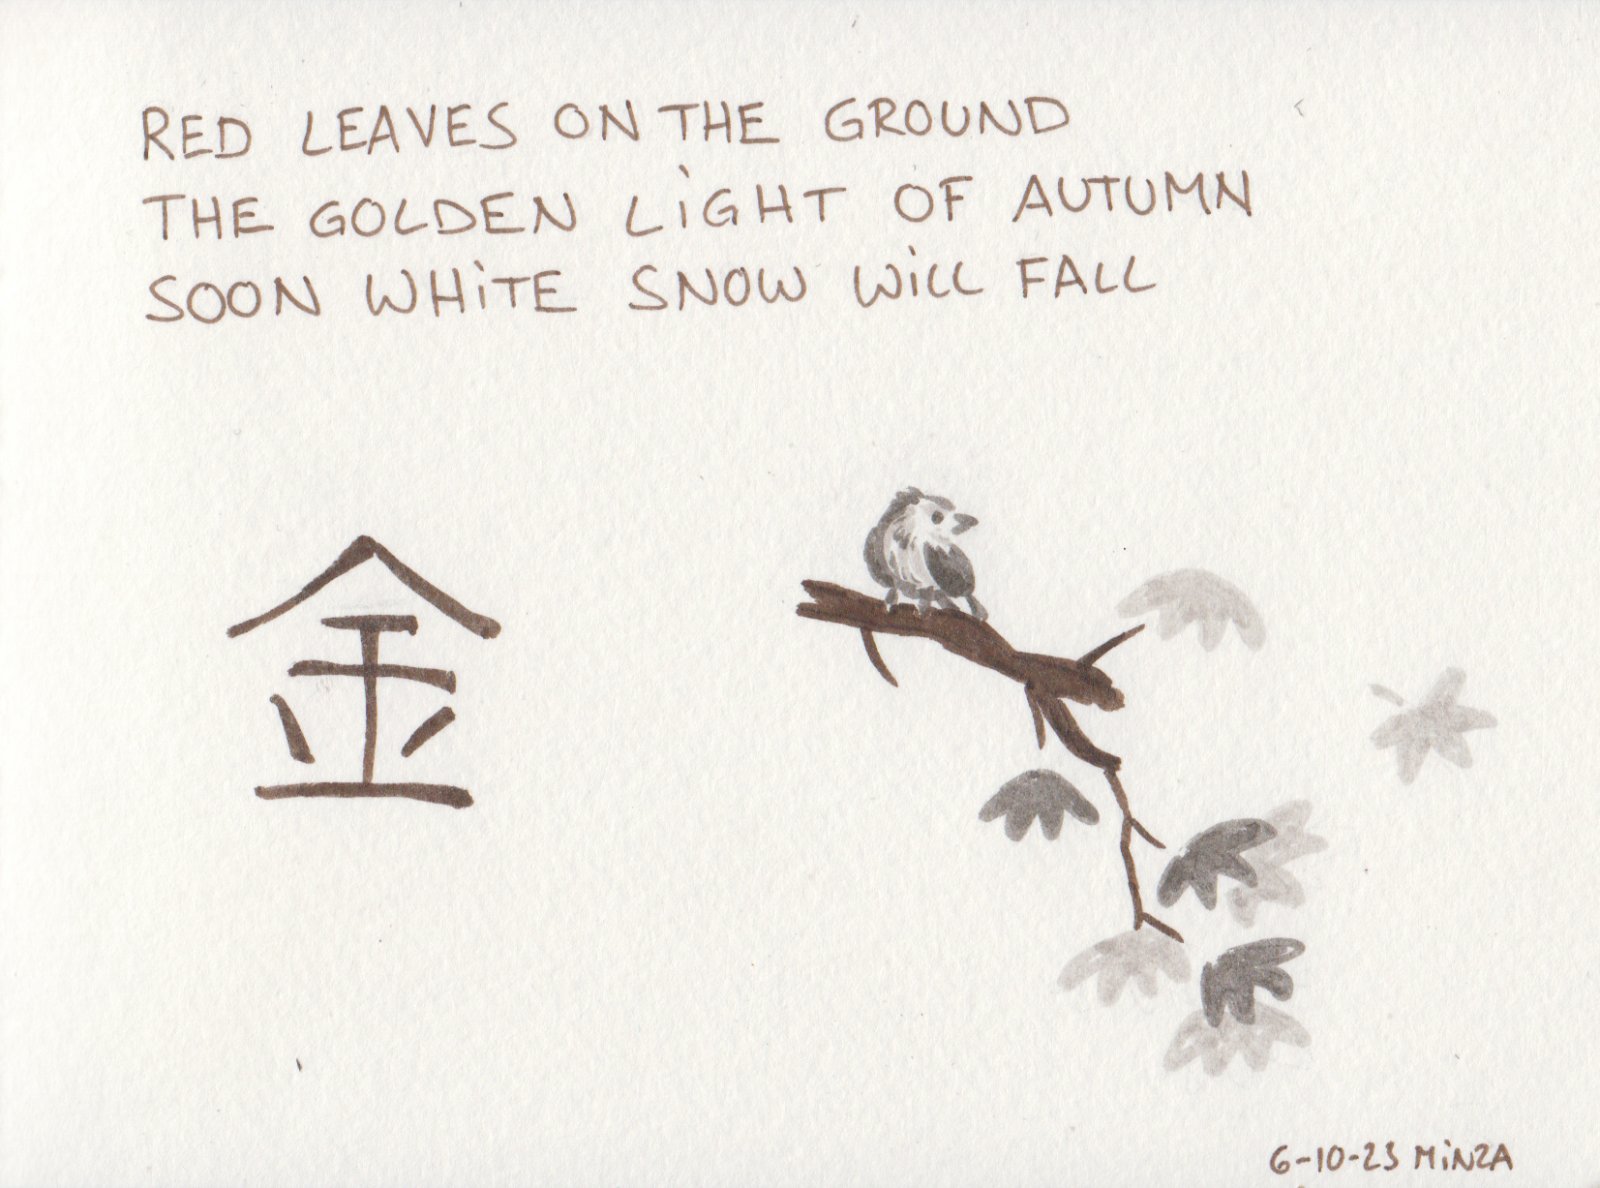 RED LEAVES ON THE GROUND
THE GOLDEN LIGHT OF AUTUMN
SOON WHITE SNOW WILL FALL
金
6-10-23 MiNZA